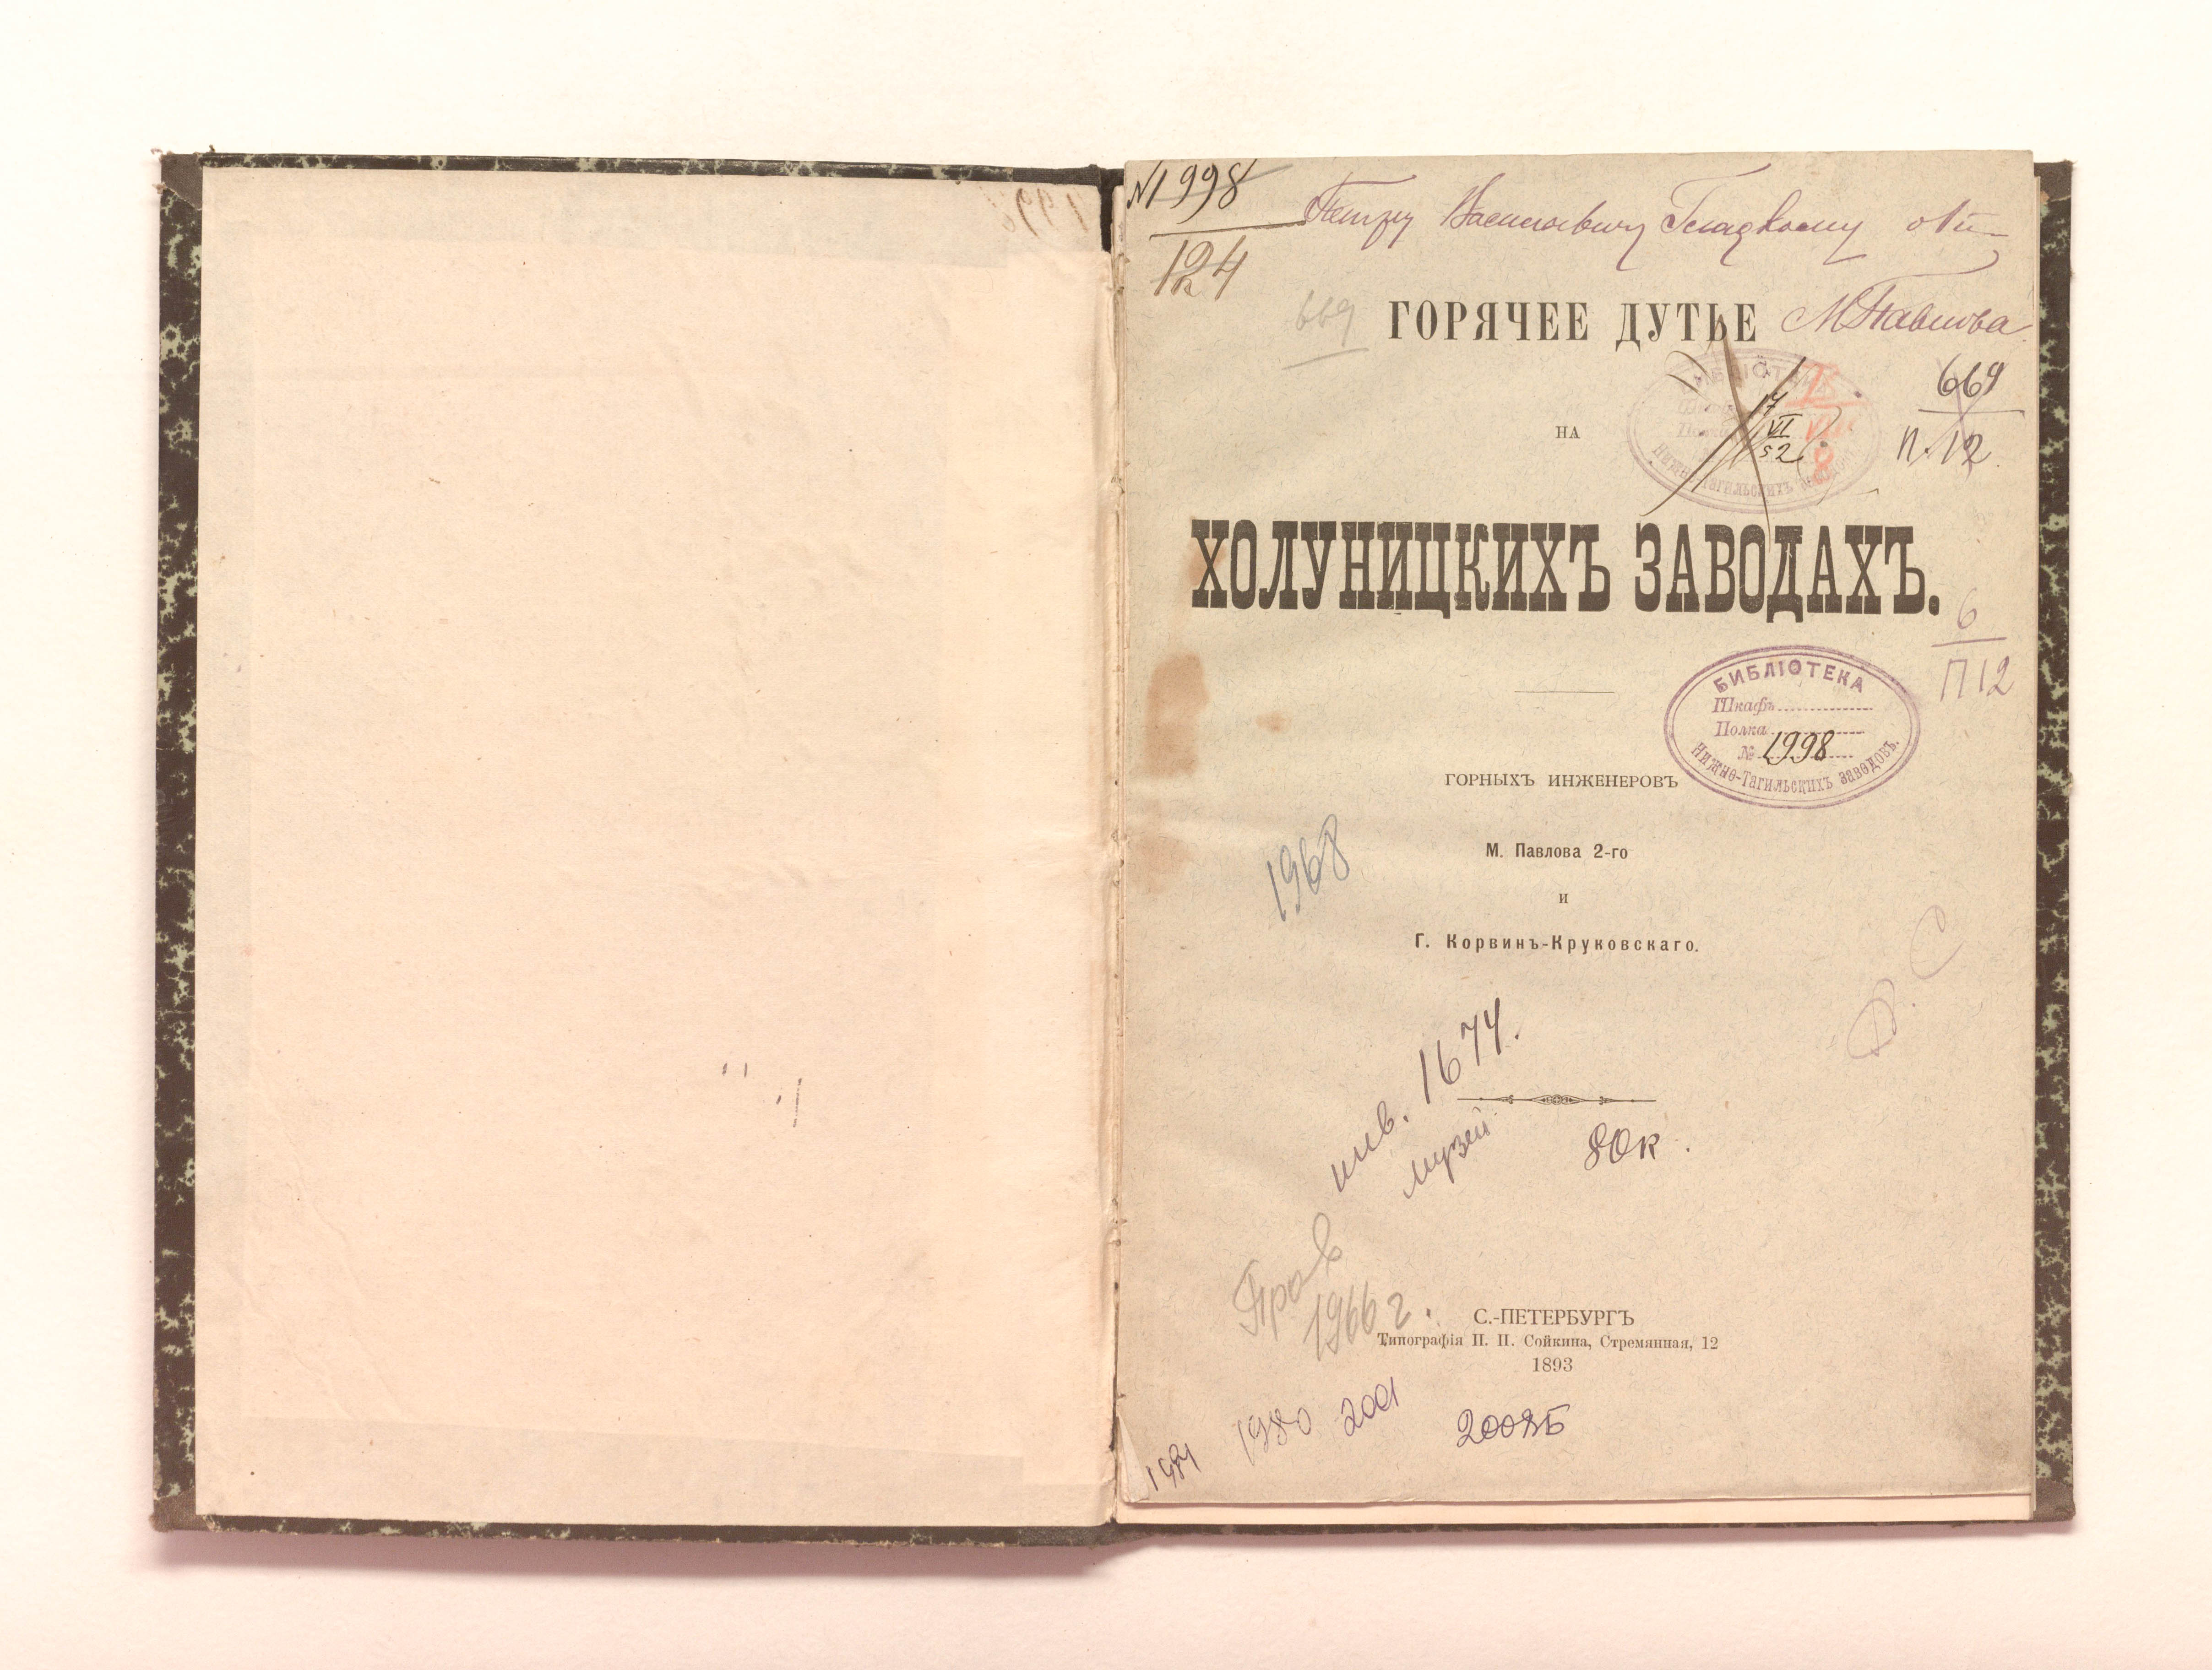 № 1998
124
Петру Васильевичу Гладкому от
М Павлова
669
ГОРЯЧЕЕ ДУТЬЕ
НА
17
VI
52
669
П. 12
ХОЛУНИЦКИХЪ ЗАВОДАХЪ.
6
П 12
БИБЛІОТЕКА
Шкафъ
Полка
№ 1998
Нижне-Тагильскихъ заводовъ.
ГОРНЫХЪ ИНЖЕНЕРОВЪ
М. Павлова 2-го
и
Г. Корвинъ-Круковскаго.
1968
инв. 1674.
музей
80к.
Пров
1966 г.
С.-ПЕТЕРБУРГЪ
Типографія П. П. Сойкина, Стремянная, 12
1893
1980 2001